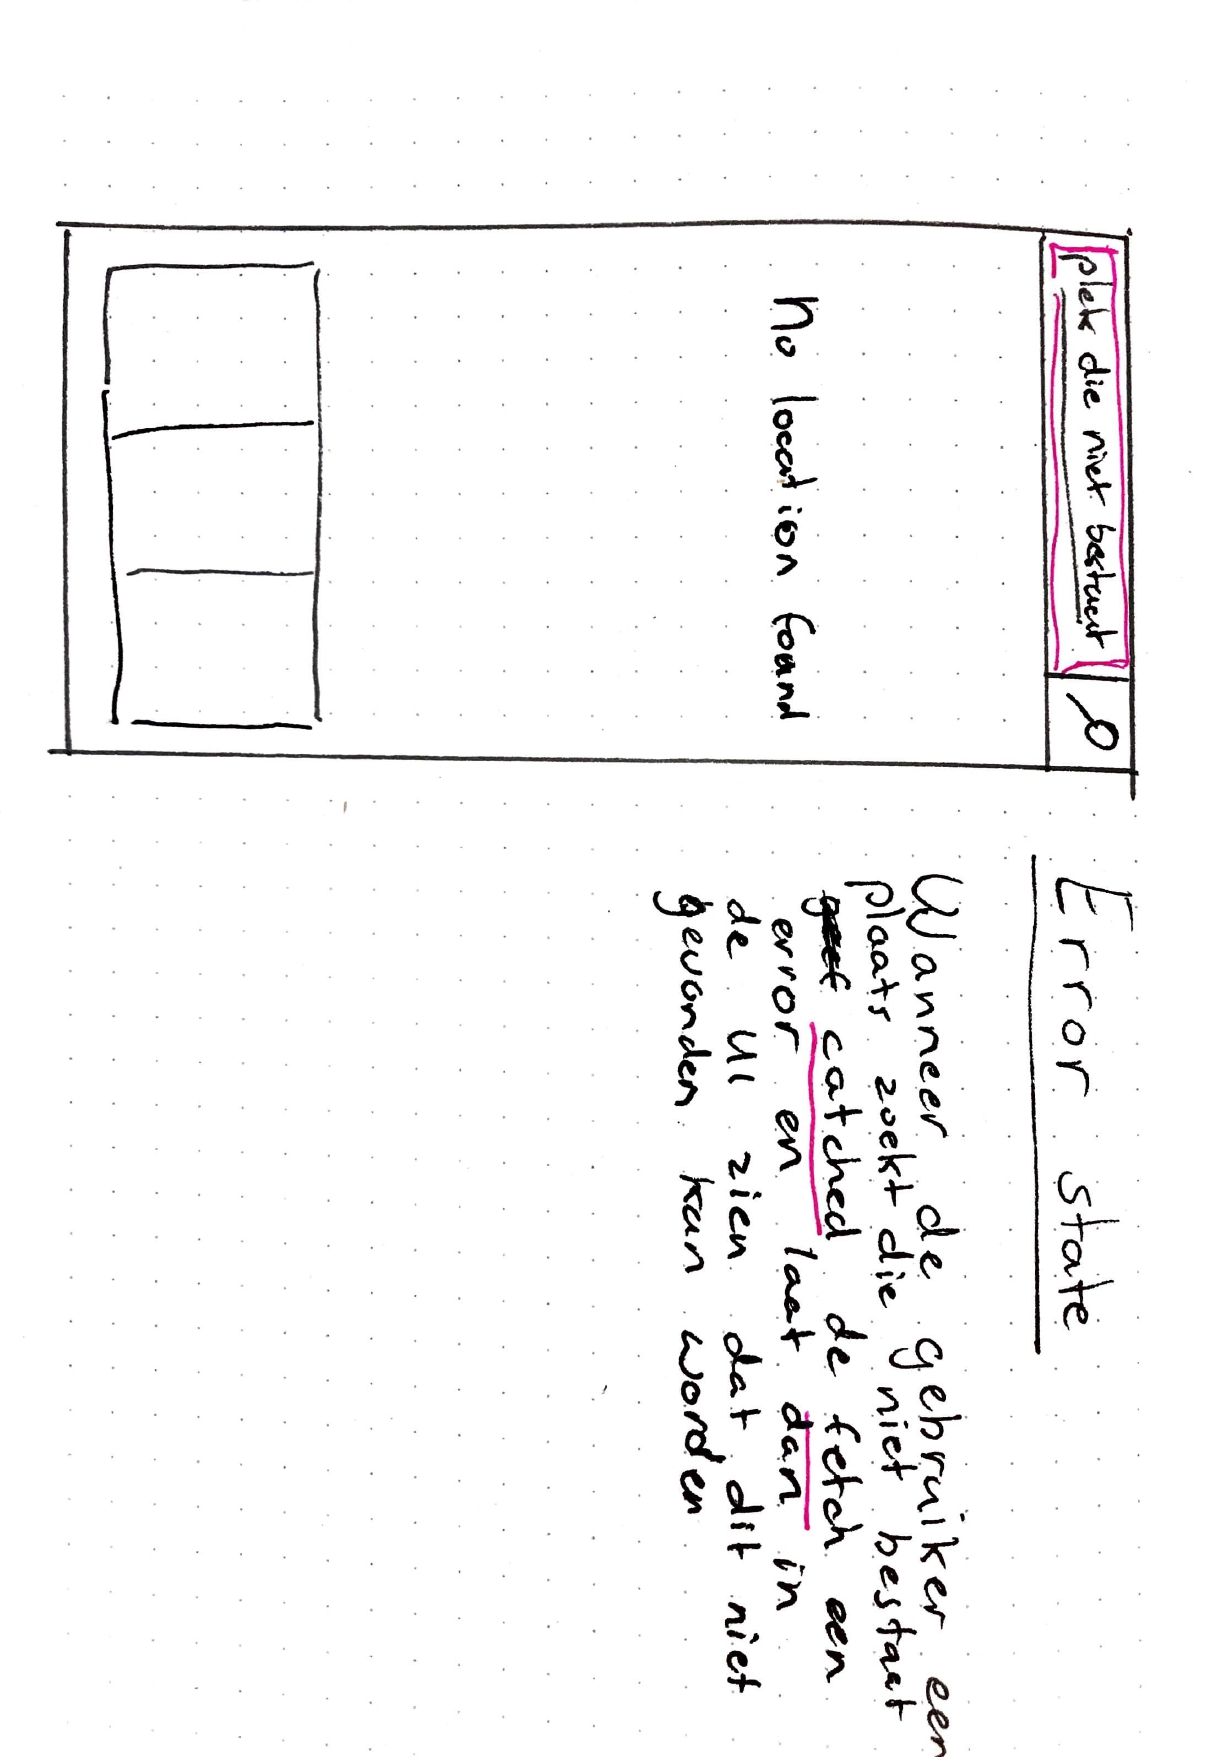 plek die niet bestaat
No location found
Error state
Wanneer de gebruiker een
plaats zoekt die niet bestaat
geef catched de fetch een
error en laat dan in
de UI zien dat dit niet
gevonden kan worden